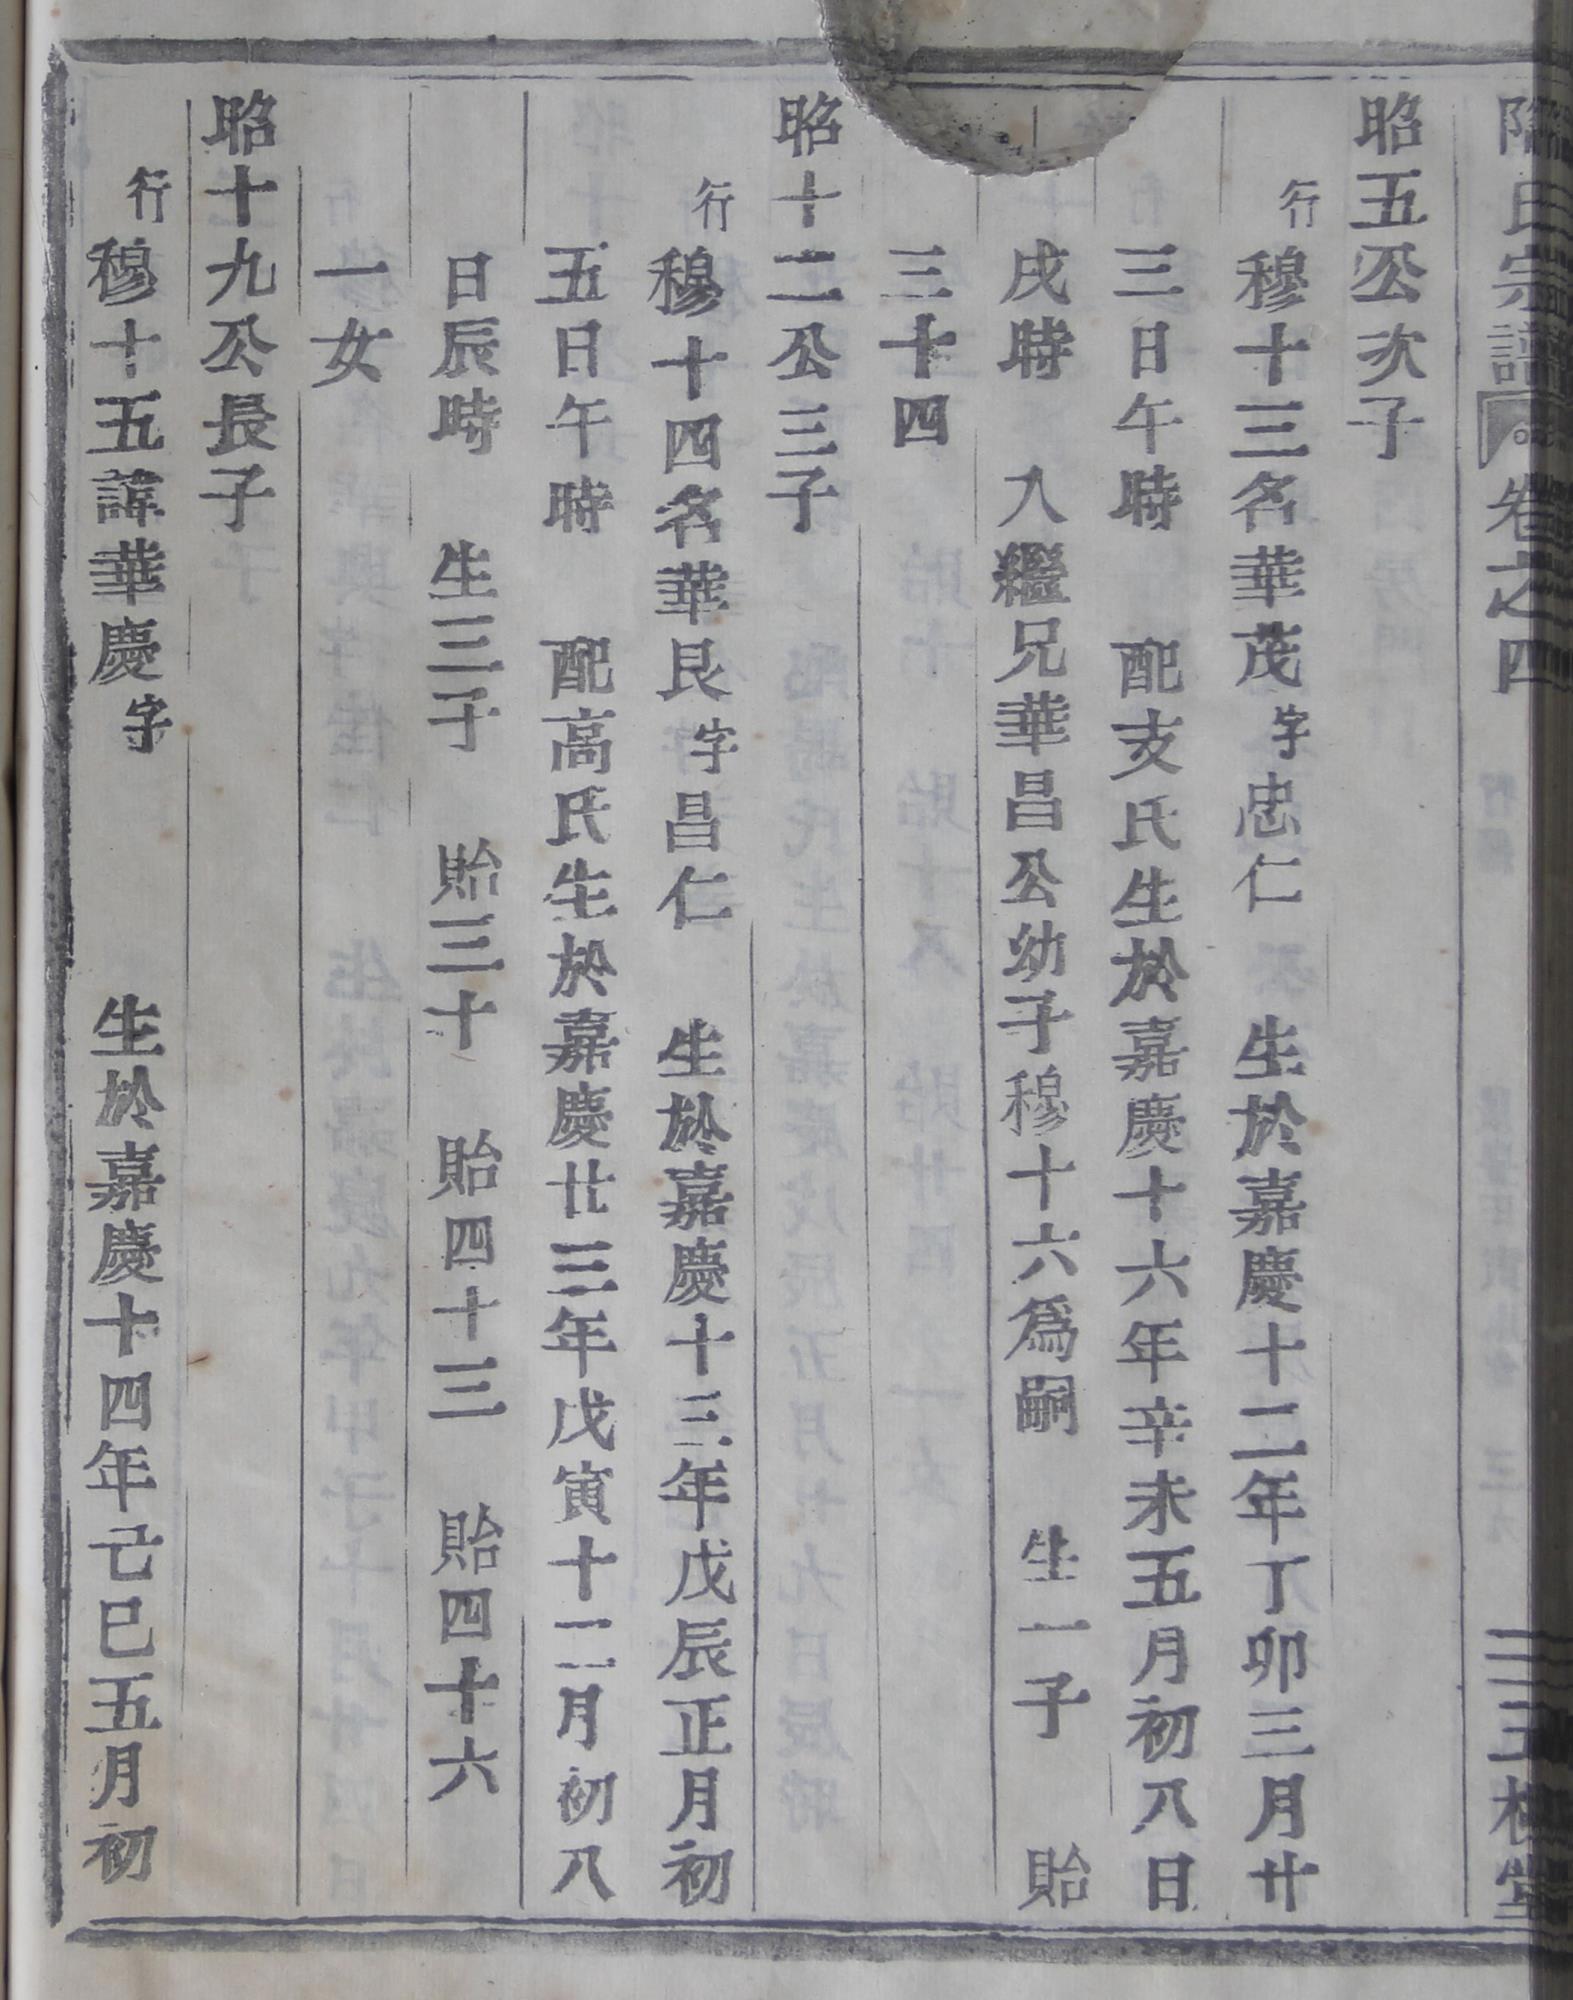 氏宗譜 卷之四 三
昭五公次子
行穆十三名華茂字忠仁 生於嘉慶十二年丁卯三月廿
三日午時 配支氏生於嘉慶十六年辛未五月初八日
戌時 入繼兄華昌公幼子穆十六爲嗣 生一子 貽
三十四
昭十二公三子
行穆十四名華艮字昌仁 生於嘉慶十三年戊辰正月初
五日午時 配高氏生於嘉慶廿三年戊寅十二月初八
日辰時 生三子 貽三十 貽四十三 貽四十六
一女
昭十九公長子
行穆十五諱華慶字 生於嘉慶十四年己巳五月初